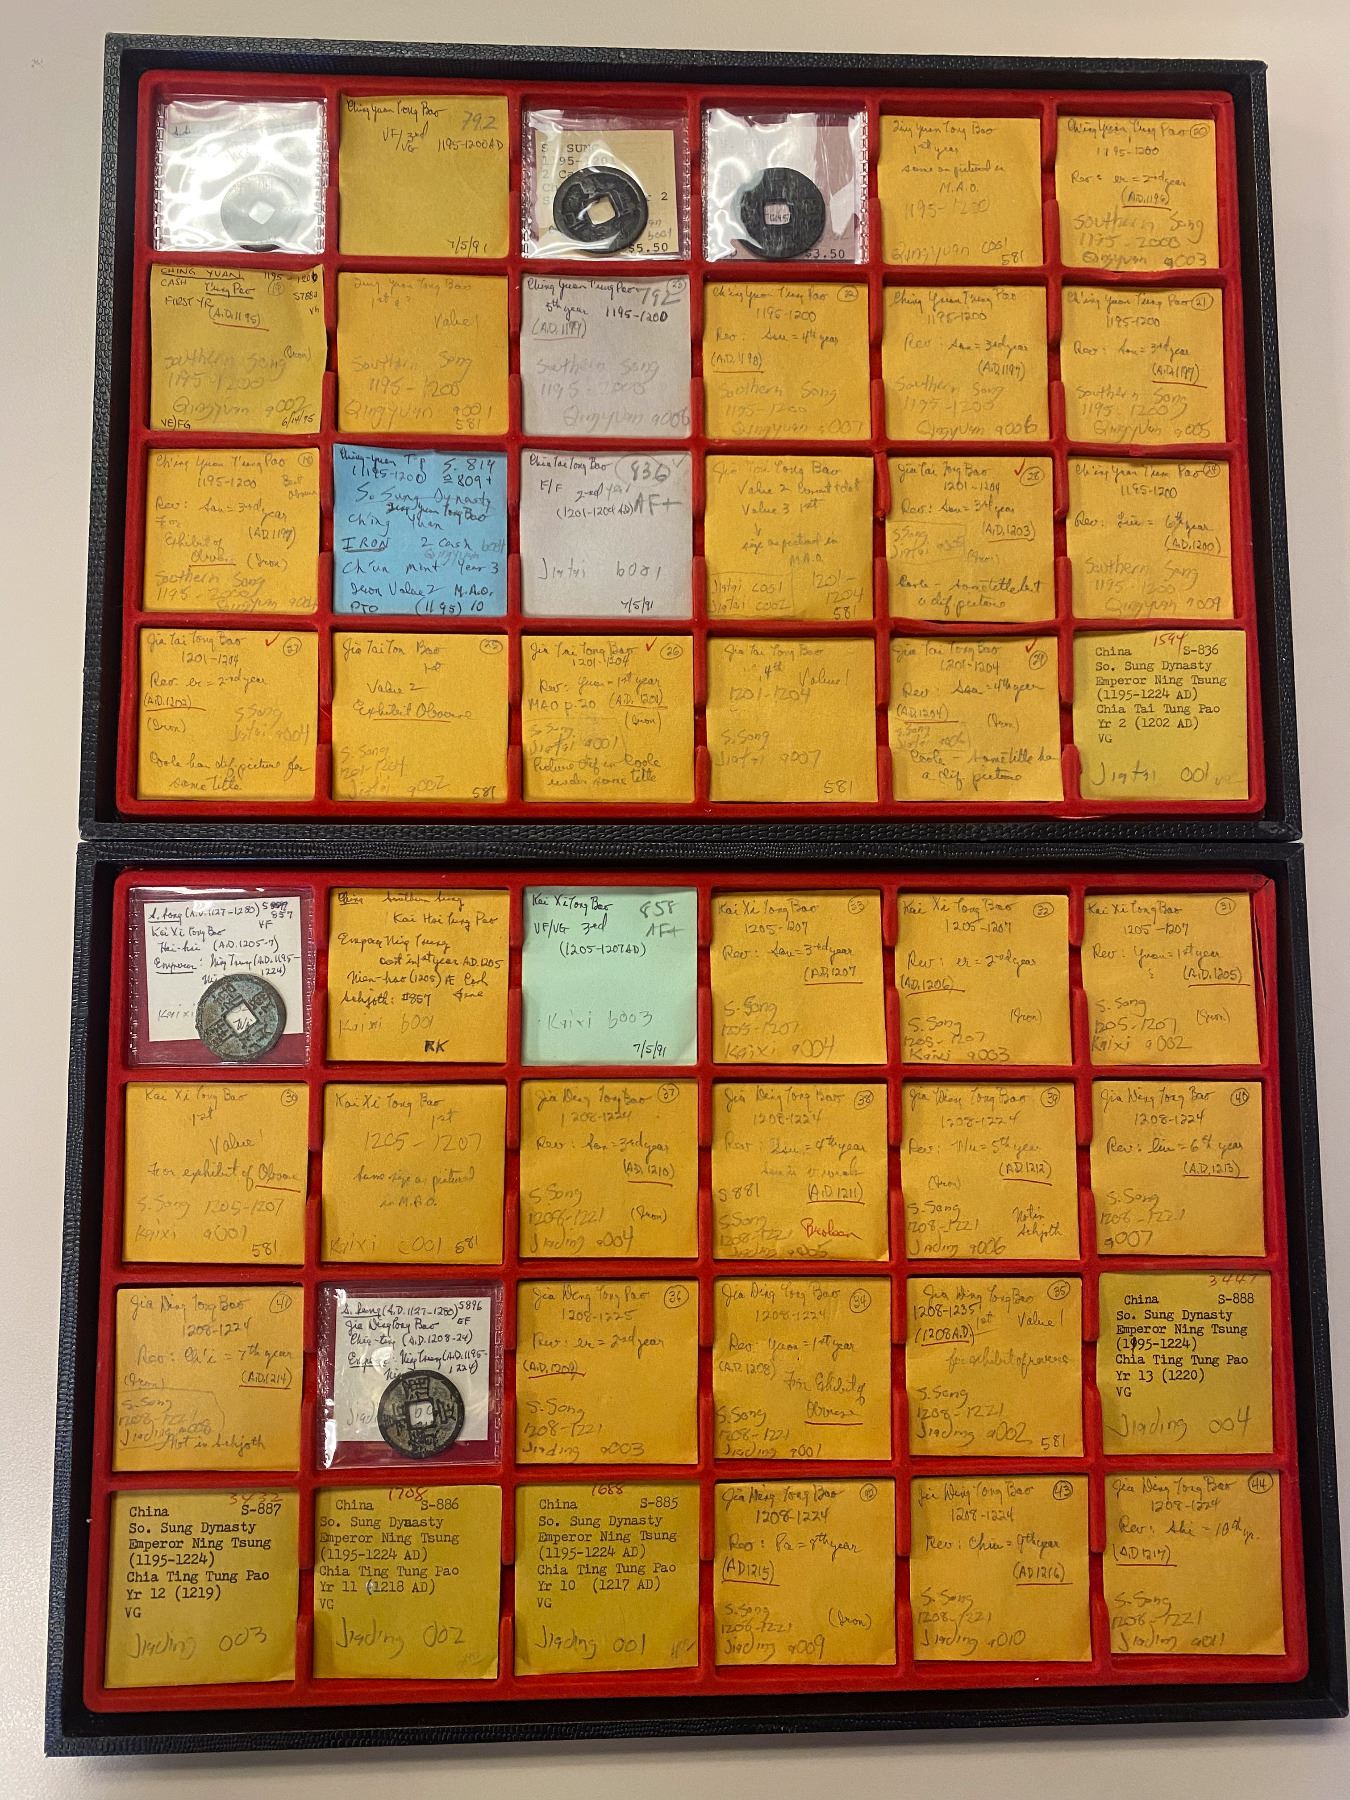 Ching Yuan Tong Bao
792
VF/VG 3rd
1195-1200AD
7/5/91
S. SUNG
1195-
2
$5.50
$3.50
Qing Yuan Tong Bao
1st year
same as pictured in
M.A.O.
1195-1200
Qingyuan c001
581
Ch'ing Yuan T'ung Pao 20
1195-1200
Rev: er = 2nd year
(A.D. 1196)
Southern Song
1195-2000
Qingyuan a003
CHING YUAN 1195-1200
CASH Tung Pao 19
FIRST YR
(A.D. 1195)
(Iron)
Southern Song
1195-1200
Qingyuan a002
VF/FG 6/14/95
Qing Yuan Tong Bao
Value 1
Southern Song
1195-1200
Qingyuan a001
581
Ching Yuan T'ung Pao 23
792
5th year 1195-1200
(A.D. 1199)
Southern Song
1195-2000
Qingyuan a008
Ch'ing Yuan T'ung Pao 22
1195-1200
Rev: ssu = 4th year
(A.D. 1198)
Southern Song
1195-1200
Qingyuan a007
Ch'ing Yuan T'ung Pao
1195-1200
Rev: san = 3rd year
(A.D. 1197)
Southern Song
1195-1200
Qingyuan a006
Ch'ing Yuan T'ung Pao 21
1195-1200
Rev: san = 3rd year
(A.D. 1197)
Southern Song
1195-1200
Qingyuan a005
Ch'ing Yuan T'ung Pao
1195-1200
Rev: san = 3rd year
For (A.D. 1197)
Exhibit of
Obverse (Iron)
Southern Song
1195-2000
Qingyuan a004
Ching-yuan T.p S. 814
1195-1200 809+
So. Sung Dynasty
Qing Yuan Tong Bao
Ch'ing Yuan
IRON 2 cash b001
Qingyuan
Ch'un mint year 3
Iron Value 2 M.A.O.
PTO (1195) 10
Chia Tai Tong Bao 836
F/F 2nd yr AF+
(1201-1204 AD)
Jiatai b001
7/5/91
Jia Tai Tong Bao
Value 2 Crescent + dot
Value 3 1st
size as pictured in
M.A.O.
Jiatai c001 1201-
Jiatai c002 1204
581
Jia Tai Tong Bao 28
1201-1204
Rev: san = 3rd year
S Song (A.D. 1203)
Jiatai a005 (Iron)
Coole - same title but
a dif picture
Ch'ing Yuan T'ung Pao 24
1195-1200
Rev: Liu = 6th year
(A.D. 1200)
Southern Song
1195-1200
Qingyuan a009
Jia Tai Tong Bao 27
1201-1204
Rev: er = 2nd year
(A.D. 1202)
(Iron) S Song
Jiatai a004
Coole has dif picture for
same title
Jia Tai Ton Bao 25
1st
Value 2
Exhibit Obverse
S. Song
1201-1204
Jiatai a002 581
Jia Tai Tong Bao 26
1201-1204
Rev: Yuan = 1st year
MAO p. 20 (A.D. 1201)
S. Song (Iron)
Jiatai a001
Picture dif in Coole
under same title
Jia Tai Tong Bao
4th Value 1
1201-1204
S. Song
Jiatai a007
581
Jia Tai Tong Bao 29
1201-1204
Rev: Ssu = 4th year
(A.D. 1204) (Iron)
S. Song
Jiatai a006
Coole - same title has
a dif picture
1594
China S-836
So. Sung Dynasty
Emperor Ning Tsung
(1195-1224 AD)
Chia Tai Tung Pao
Yr 2 (1202 AD)
VG
Jiatai 001
S. Song (A.D. 1127-1280) 857
Kai Xi Tong Bao VF
Kai-hsi (A.D. 1205-7)
Emperor: Ning Tsung (A.D. 1195-
1224)
Kaixi
China Southern Sung
Kai Hsi Tung Pao
Emperor Ning Tsung
Cast in 1st year A.D. 1205
Nien-hao (1205) Æ Cash
Schjoth: #857 Fine
Kaixi b001
RK
Kai Xi Tong Bao 858
VF/VG 3rd AF+
(1205-1207AD)
Kaixi b003
7/5/91
Kai Xi Tong Bao 33
1205-1207
Rev: san = 3rd year
(A.D. 1207
S. Song
1205-1207
Kaixi a004
Kai Xi Tong Bao 32
1205-1207
Rev: er = 2nd year
(A.D. 1206)
S. Song (Iron)
1205-1207
Kaixi a003
Kai Xi Tong Bao 31
1205-1207
Rev: Yuan = 1st year
(A.D. 1205)
S. Song
1205-1207 (Iron)
Kaixi a002
Kai Xi Tong Bao 30
1st
Value 1
For exhibit of Obverse
S. Song 1205-1207
Kaixi a001
581
Kai Xi Tong Bao
1st
1205-1207
Same size as pictured
in M.A.O.
Kaixi c001 581
Jia Ding Tong Bao 37
1208-1224
Rev: San = 3rd year
(A.D. 1210)
S. Song
1208-1221 (Iron)
Jiading a004
Jia Ding Tong Bao 38
1208-1224
Rev: Ssu = 4th year
ssu is weak
S 881 (A.D. 1211)
S Song
1208-1221 Broken
Jiading a005
Jia Ding Tong Bao 39
1208-1224
Rev: Wu = 5th year
(A.D. 1212)
(Iron)
S. Song
1208-1221 Not in
Jiading a006 Schjoth
Jia Ding Tong Bao 40
1208-1224
Rev: liu = 6th year
(A.D. 1213)
S. Song
1208-1221
a007
Jia Ding Tong Bao 41
1208-1224
Rev: Ch'i = 7th year
(Iron) (A.D. 1214)
S. Song
1208-1221
Jiading a008
Not in Schjoth
S. Sung (A.D. 1127-1280) S896
Jia Ding Tong Bao EF
Chia-ting (A.D. 1208-24)
Emperor: Ning Tsung (A.D. 1195-
1224)
Jia Ding Tong Bao 36
1208-1225
Rev: er = 2nd year
(A.D. 1209)
S. Song
1208-1221
Jiading a003
Jia Ding Tong Bao 34
1208-1224
Rev: Yuan = 1st year
(A.D. 1208)
For Exhibit of
S. Song Obverse
1208-1221
Jiading a001
Jia Ding Tong Bao 35
1208-1235 1st Value 1
(1208 A.D.)
for exhibit of reverse
S. Song
1208-1221
Jiading a002 581
3447
China S-888
So. Sung Dynasty
Emperor Ning Tsung
(1995-1224)
Chia Ting Tung Pao
Yr 13 (1220)
VG
Jiading 004
3432
China S-887
So. Sung Dynasty
Emperor Ning Tsung
(1195-1224)
Chia Ting Tung Pao
Yr 12 (1219)
VG
Jiading 003
1708
China S-886
So. Sung Dynasty
Emperor Ning Tsung
(1195-1224 AD)
Chia Ting Tung Pao
Yr 11 (1218 AD)
VG
Jiading 002
1688
China S-885
So. Sung Dynasty
Emperor Ning Tsung
(1195-1224 AD)
Chia Ting Tung Pao
Yr 10 (1217 AD)
VG
Jiading 001
Jia Ding Tong Bao 42
1208-1224
Rev: Pa = 8th year
(AD 1215)
S. Song
1208-1221 (Iron)
Jiading a009
Jia Ding Tong Bao 43
1208-1224
Rev: Chiu = 9th year
(AD 1216)
S. Song
1208-1221
Jiading a010
Jia Ding Tong Bao 44
1208-1224
Rev: shi = 10th yr.
(A.D. 1217)
S. Song
1208-1221
Jiading a011